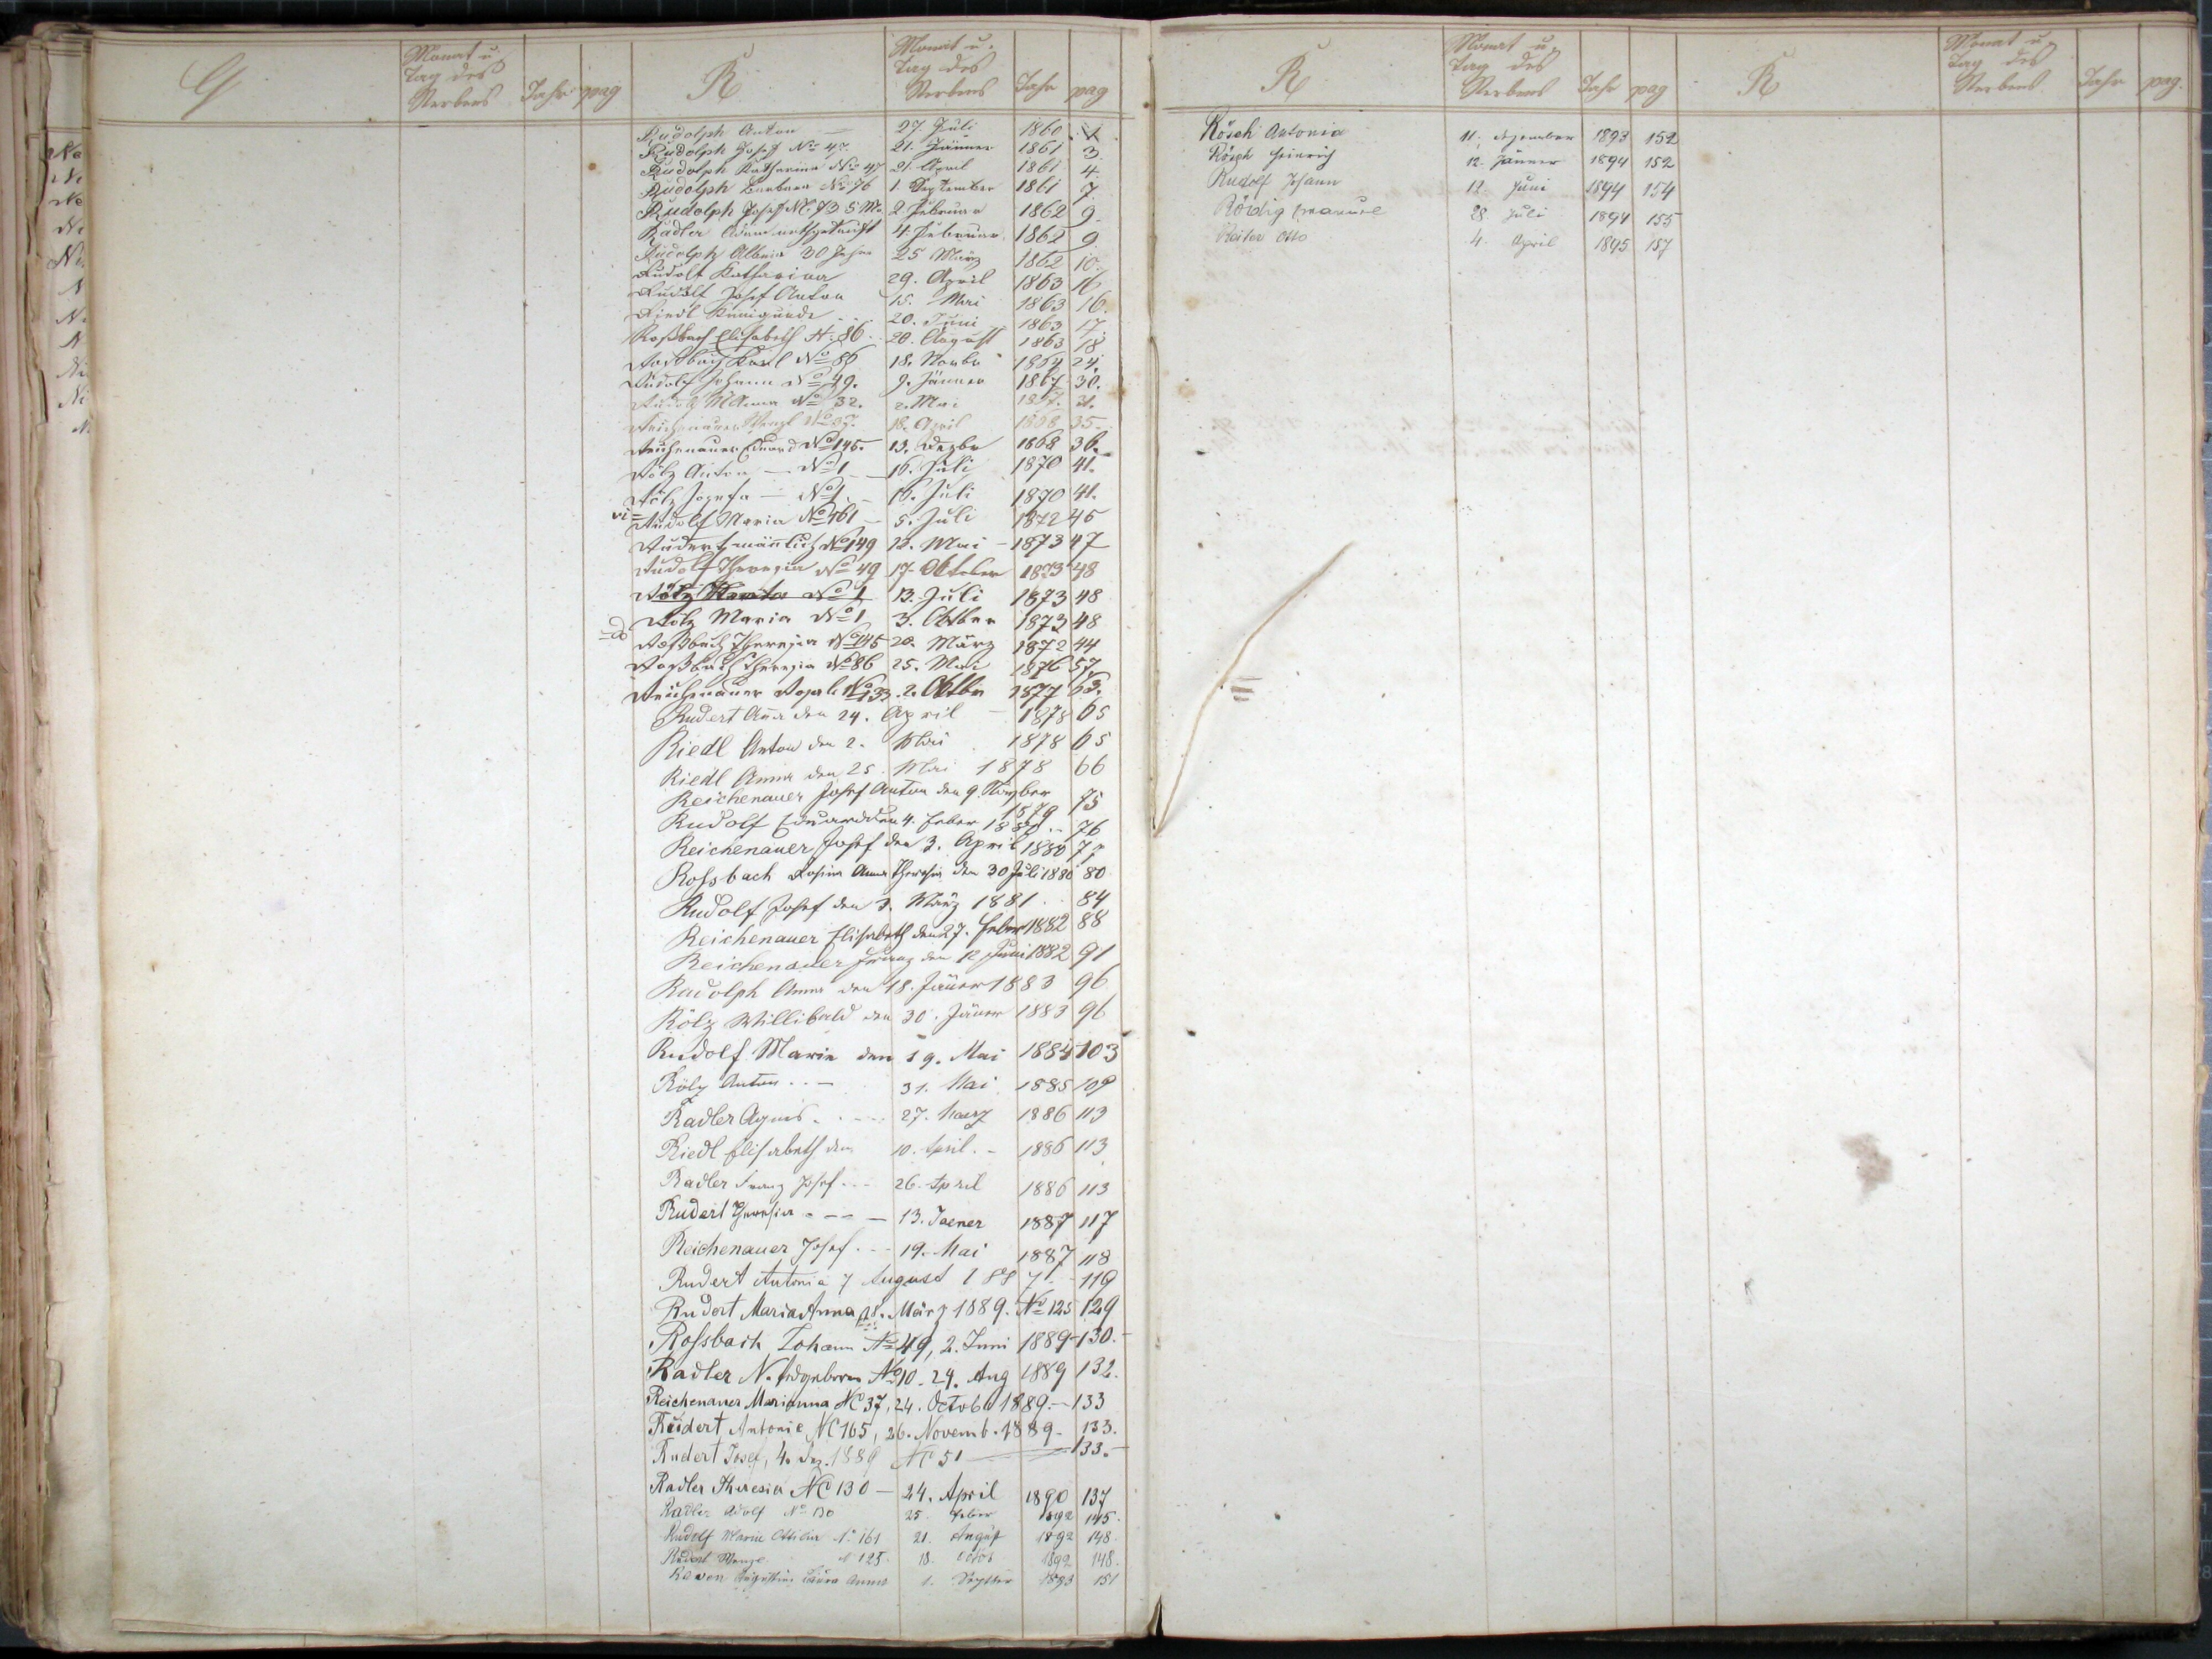 Q Monat u. Tag des Sterbens Jahr pag R Monat u. Tag des Sterbens Jahr pag
Rudolph Anton — 27. Juli 1860 1
Rudolph Josef No 47. 21. Jänner 1861 3.
Rudolph Katharina No 47 21. April 1861 4.
Rudolph Barbara No 76 1. September 1861 7.
Rudolph Josef 2. Februar 1862 9.
Radler Adam 4. Februar 1862 9.
Rudolph 30 Jahre 25 März 1862 10.
Rudolf Katharina 29. April 1863 16
Rudolf Josef Anton 15. Mai 1863 16.
Riedl Kunigunde 20. Juni 1863 17.
Roßbach Elisabeth N. 86. 20. August 1863 18
Roßbach Karl No 86 18. Novbr 1864 24.
Rudolf Johann No 49. 9. Jänner 1867 30.
Rudolf No 32. 2. Mai 1867. 31.
Reichenauer Wenzl No 37. 18. April 1868 35.
Reichenauer Eduard No 145. 13. Dezbr 1868 36.
Rölz Anton — No 1 16. Juli 1870 41.
Rölz Josefa — No 1. 16. Juli 1870 41.
vi= Rudolf Maria No 161 — 5. Juli 1872 45
Rudert männlich No 149 12. Mai — 1873 47
Rudolf Theresia No 49 17. Oktober 1873 48
Rölz No 1 13. Juli 1873 48
Rölz Maria No 1 3. Oktber 1873 48
Roßbach Theresia No 145 20. März 1872 44
Roßbach Theresia No 86 25. Mai 1876 57.
Reichenauer No 133. 2. Oktbr 1877 63.
Rudert Anna den 24. April — 1878 65
Riedl Anton den 2. Mai 1878 65
Riedl Anna den 25. Mai 1878 66
Reichenauer Josef Anton den 9. 1879 75
Rudolf Eduard den 4. Feber 1880. - 76
Reichenauer Josef den 3. April 1880 77
Rossbach Rosina Anna Theresia den 30 Juli 1880 80
Rudolf Josef den 3. März 1881. . 84
Reichenauer Elisabeth den 27. Feber 1882 88
Reichenauer Franz den 12 Juni 1882 91
Rudolph Anna den 18. Jäner 1883 96
Rölz Willibald den 30. Jäner 1883 96
Rudolf Marie den 19. Mai 1884 103
Rölz Anton . . — 31. Mai 1885 109
Radler Agnes . . - - - 27. Maerz 1886 113
Riedl Elisabeth den 10. April. - 1886 113
Radler Franz Josef . - - 26. April 1886 113
Rudert Theresia - - - — 13. Jaener 1887 117
Reichenauer Josef . - - 19. Mai 1887 118
Rudert Antonia 7 August 1887 - 119
Rudert Maria Anna, 28. März 1889. No 125 129
Rossbach Johann No 49, 2. Juni 1889 - 130. -
Radler N. No 10. 29. Aug 1889 132.
Reichenauer Marianna NC 37, 24. Octob. 1889. — 133
Rudert, Antonie, NC 165, 26. Novemb. 1889 - 133.
Rudert Josef, 4. Dez. 1889 NC 51 — 133. -
Radler Theresia NC 130 — 24. April 1890 137
Radler Adolf No 130 25. Feber 1892 145.
Rudolf Marie Ottilia No 161 21. August 1892 148.
Rudert Wenzl No 125. 18. Octob 1892 148.
Augustine Laura Anna 1. Septber 1893 151
R Monat u. Tag des Sterbens Jahr pag R Monat u. Tag des Sterbens Jahr pag.
Rösch Antonia 11. Dezember 1893 152
Rösch Heinrich 12. Jänner 1894 152
Rudolf Johann 12. Juni 1894 154
Rördig Emanuel 28 Juli 1894 155
Reiter Otto 4. April 1895 157